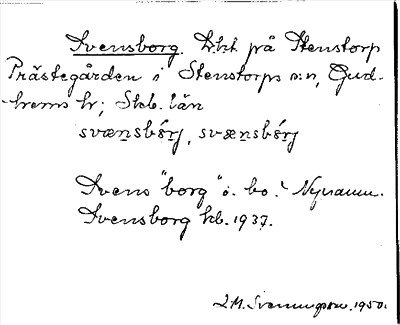 Svensborg. Lht på Stenstorp
Prästegården i Stenstorps sn, Gud-
hems hr, Skb. län
svænsbórj, svænsbórj
Svens "borg" o. bo. Nynamn.
Svensborg kb. 1937.
S.M. Svenungsson. 1950.